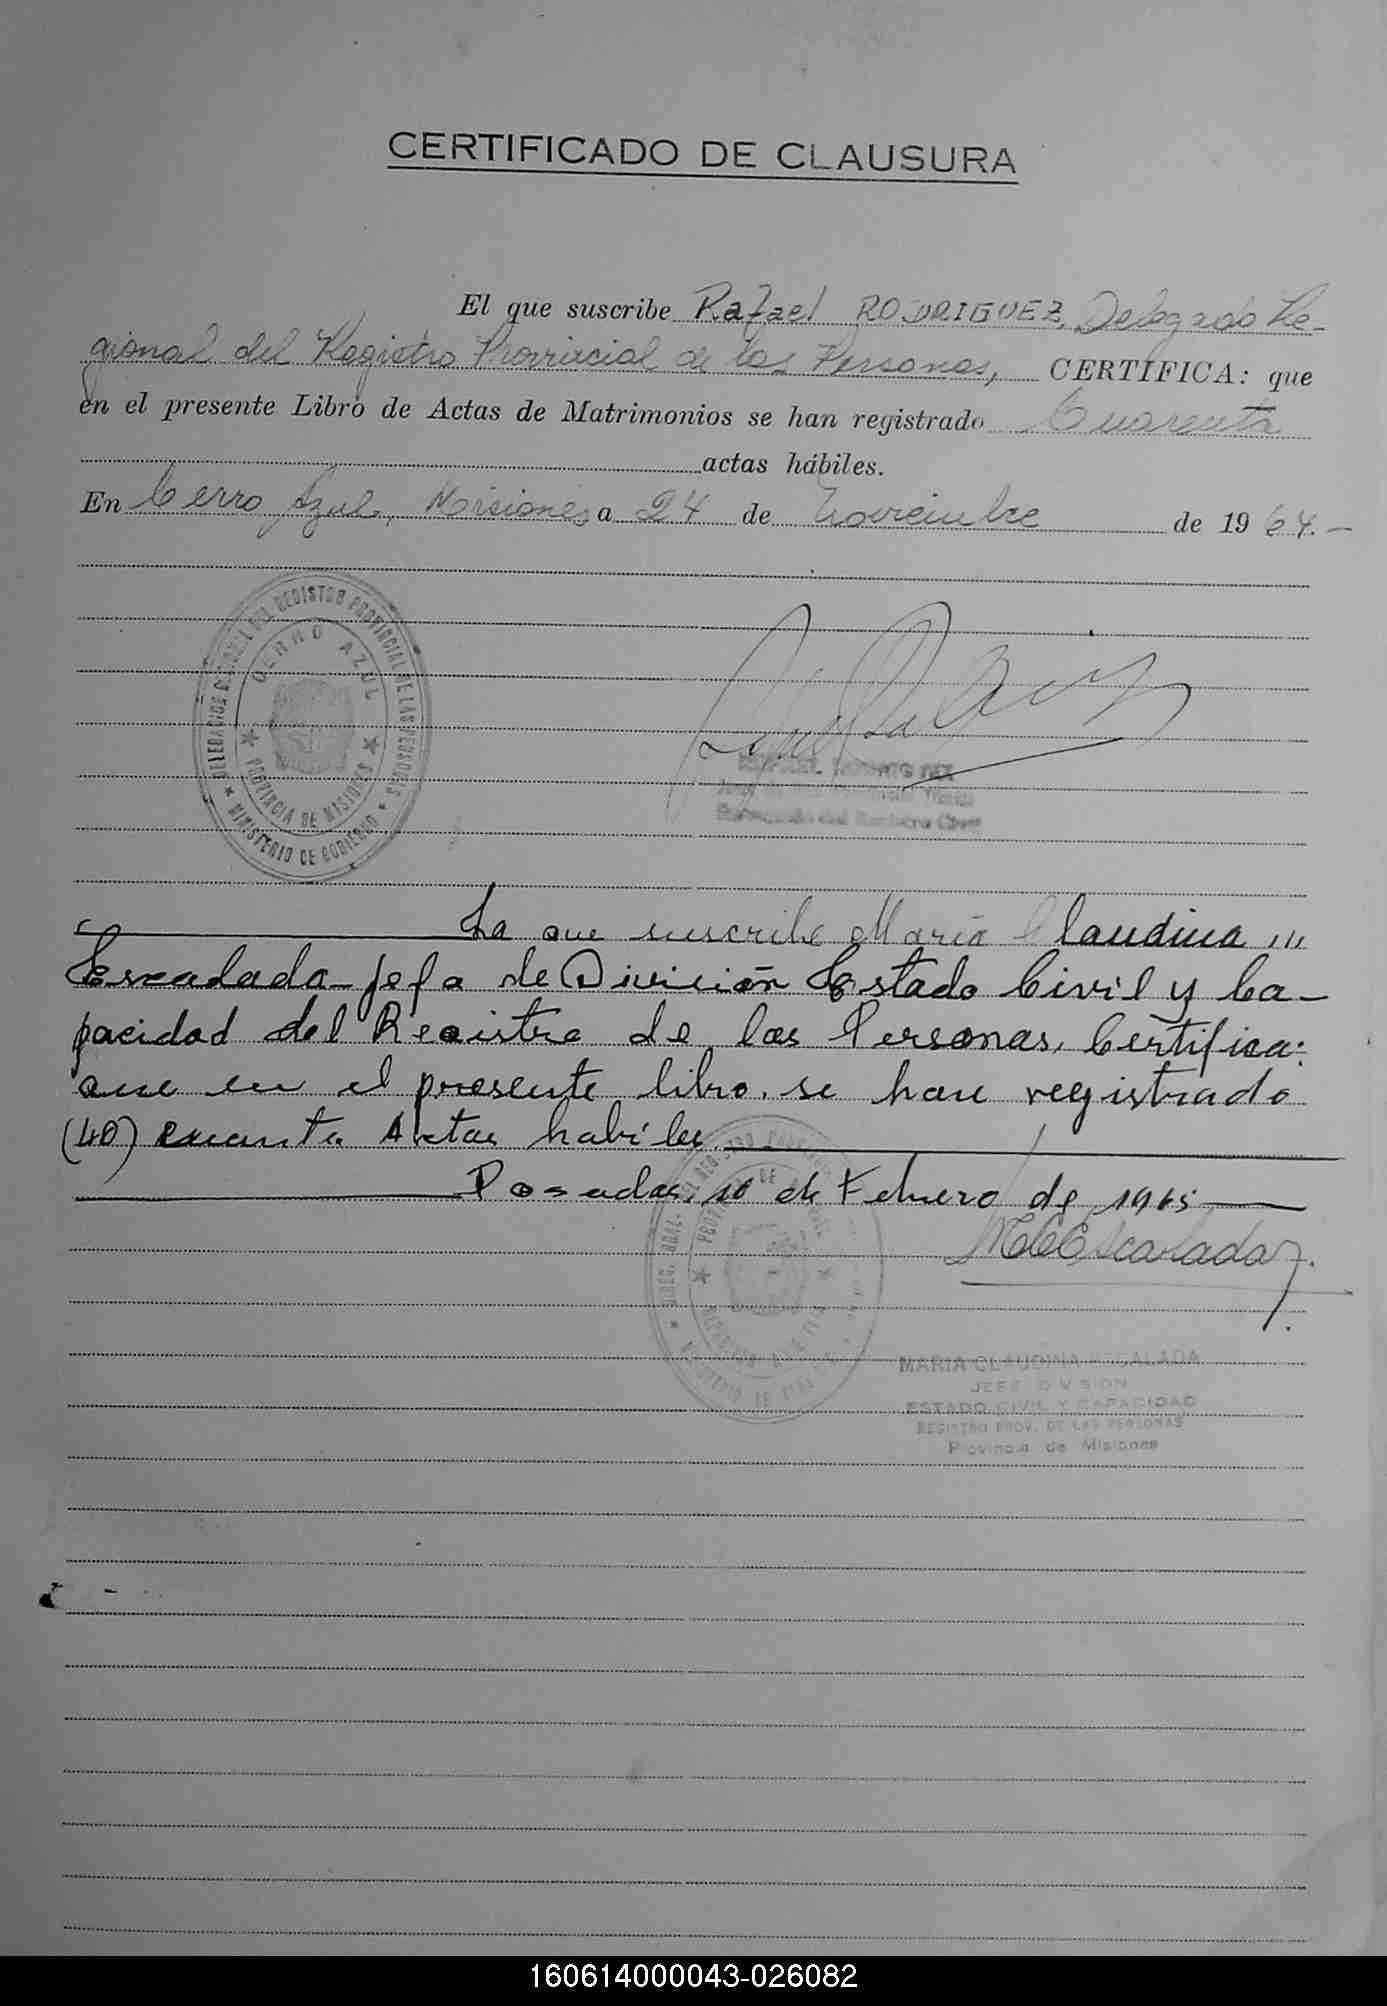 CERTIFICADO DE CLAUSURA
El que suscribe Rafael RODRIGUEZ, Delegado Re-
gional del Registro Provincial de las Personas, CERTIFICA: que
en el presente Libro de Actas de Matrimonios se han registrado Cuarenta
actas hábiles.
En Cerro Azul, Misiones a 24 de Noviembre de 1964.-
DELEGACION REGIONAL DEL REGISTRO PROVINCIAL DE LAS PERSONAS
CERRO AZUL
PROVINCIA DE MISIONES
MINISTERIO DE GOBIERNO
La que suscribe Maria Claudina ,,,
Escalada-Jefa de División Estado Civil y Ca-
pacidad del Registro de las Personas, Certifica:
que en el presente libro, se han registrado
(40) cuarenta Actas habiles.
Posadas, 10 de Febrero de 1965
MCEscalada
MARIA CLAUDINA ESCALADA
JEFE DIVISION
ESTADO CIVIL Y CAPACIDAD
REGISTRO PROV. DE LAS PERSONAS
Provincia de Misiones
160614000043-026082